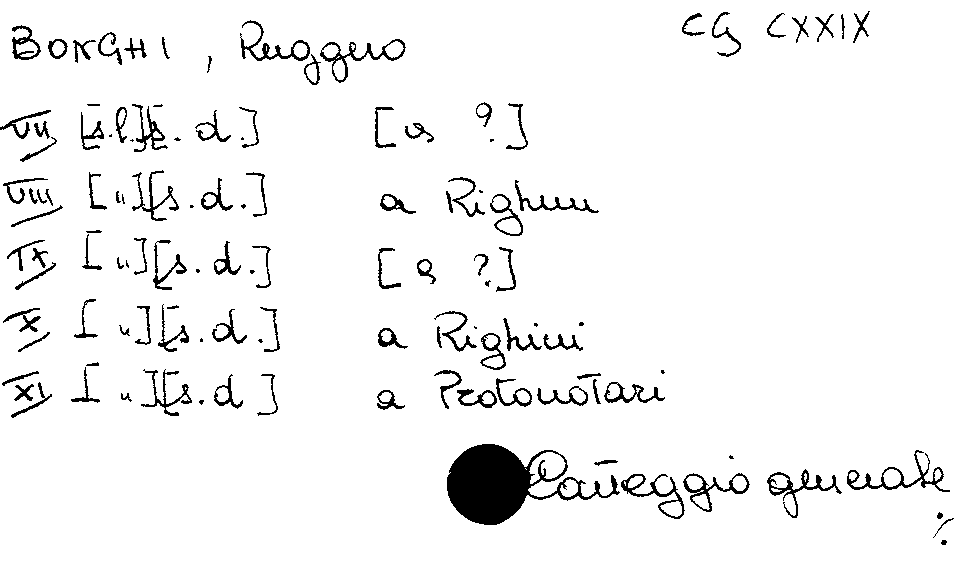 BONGHI, Ruggero CG CXXIX
VII [s.l.][s.d.] [a ?]
VIII [„][s.d.] a Righini
IX [„][s.d.] [a ?]
X [„][s.d.] a Righini
XI [„][s.d] a Protonotari
Carteggio generale
./.